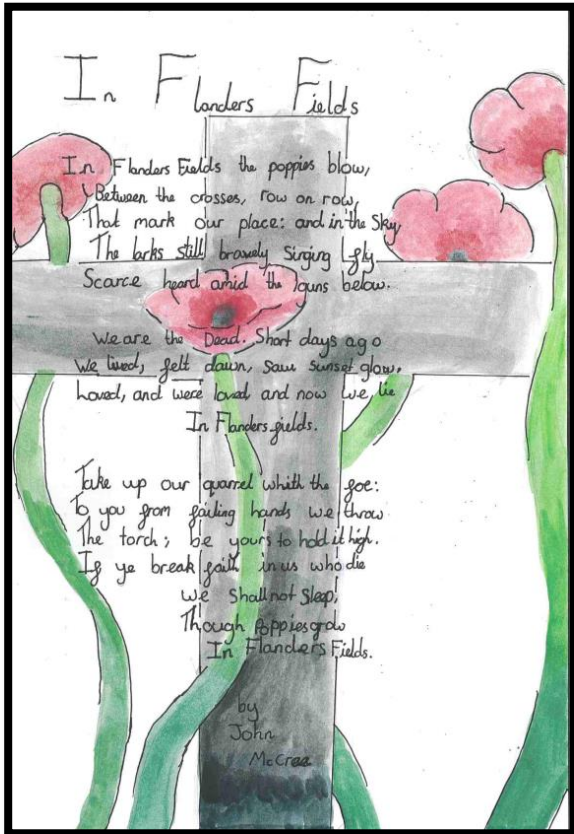 In Flanders Fields
In Flanders Fields the poppies blow,
Between the crosses, row on row,
That mark our place: and in the Sky,
The larks still bravely singing fly
Scarce heard amid the guns below.
We are the Dead. Short days ago
We lived, felt dawn, saw sunset glow,
Loved, and were loved and now we lie
In Flanders fields.
Take up our quarrel whith the foe:
To you from failing hands we throw
The torch; be yours to hold it high.
If ye break faith in us who die
we shall not sleep,
Though Poppies grow
In Flanders Fields.
by
John
McCrae